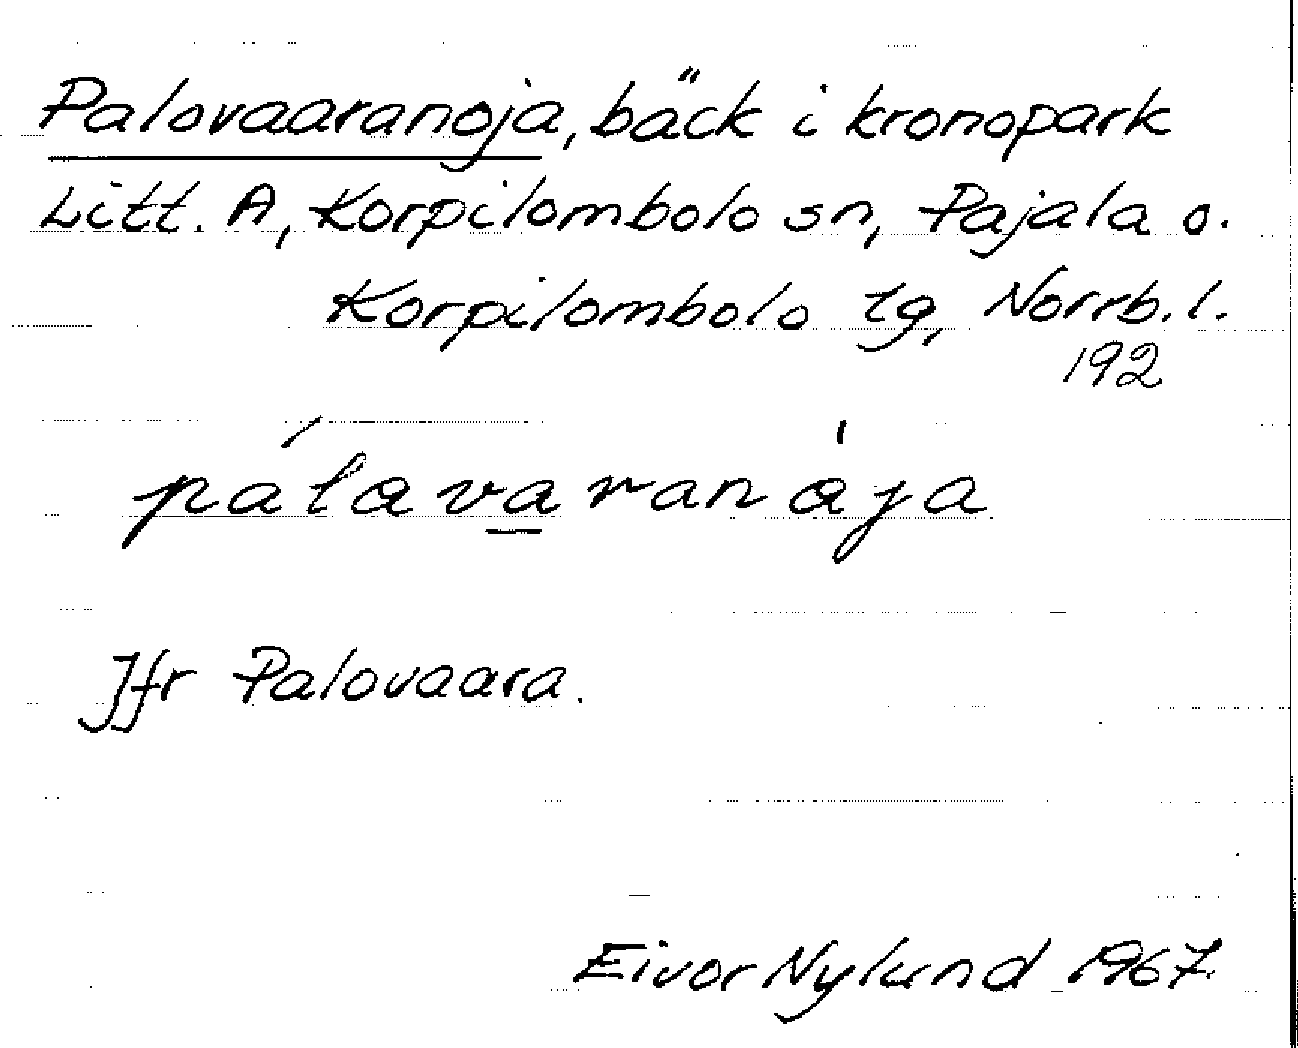 Palovaaranoja, bäck i kronopark
Litt. A, Korpilombolo sn, Pajala o.
Korpilombolo tg, Norrb. l.
192
pálavaranàja
Jfr Palovaara.
Eivor Nylund 1967.